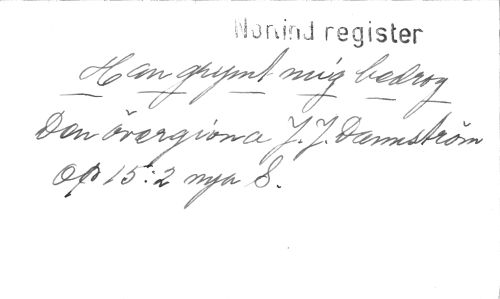 Nonind register
Han grymt mig bedrog
Den övergivna J.J. Dannström
Op 15:2 nya S.